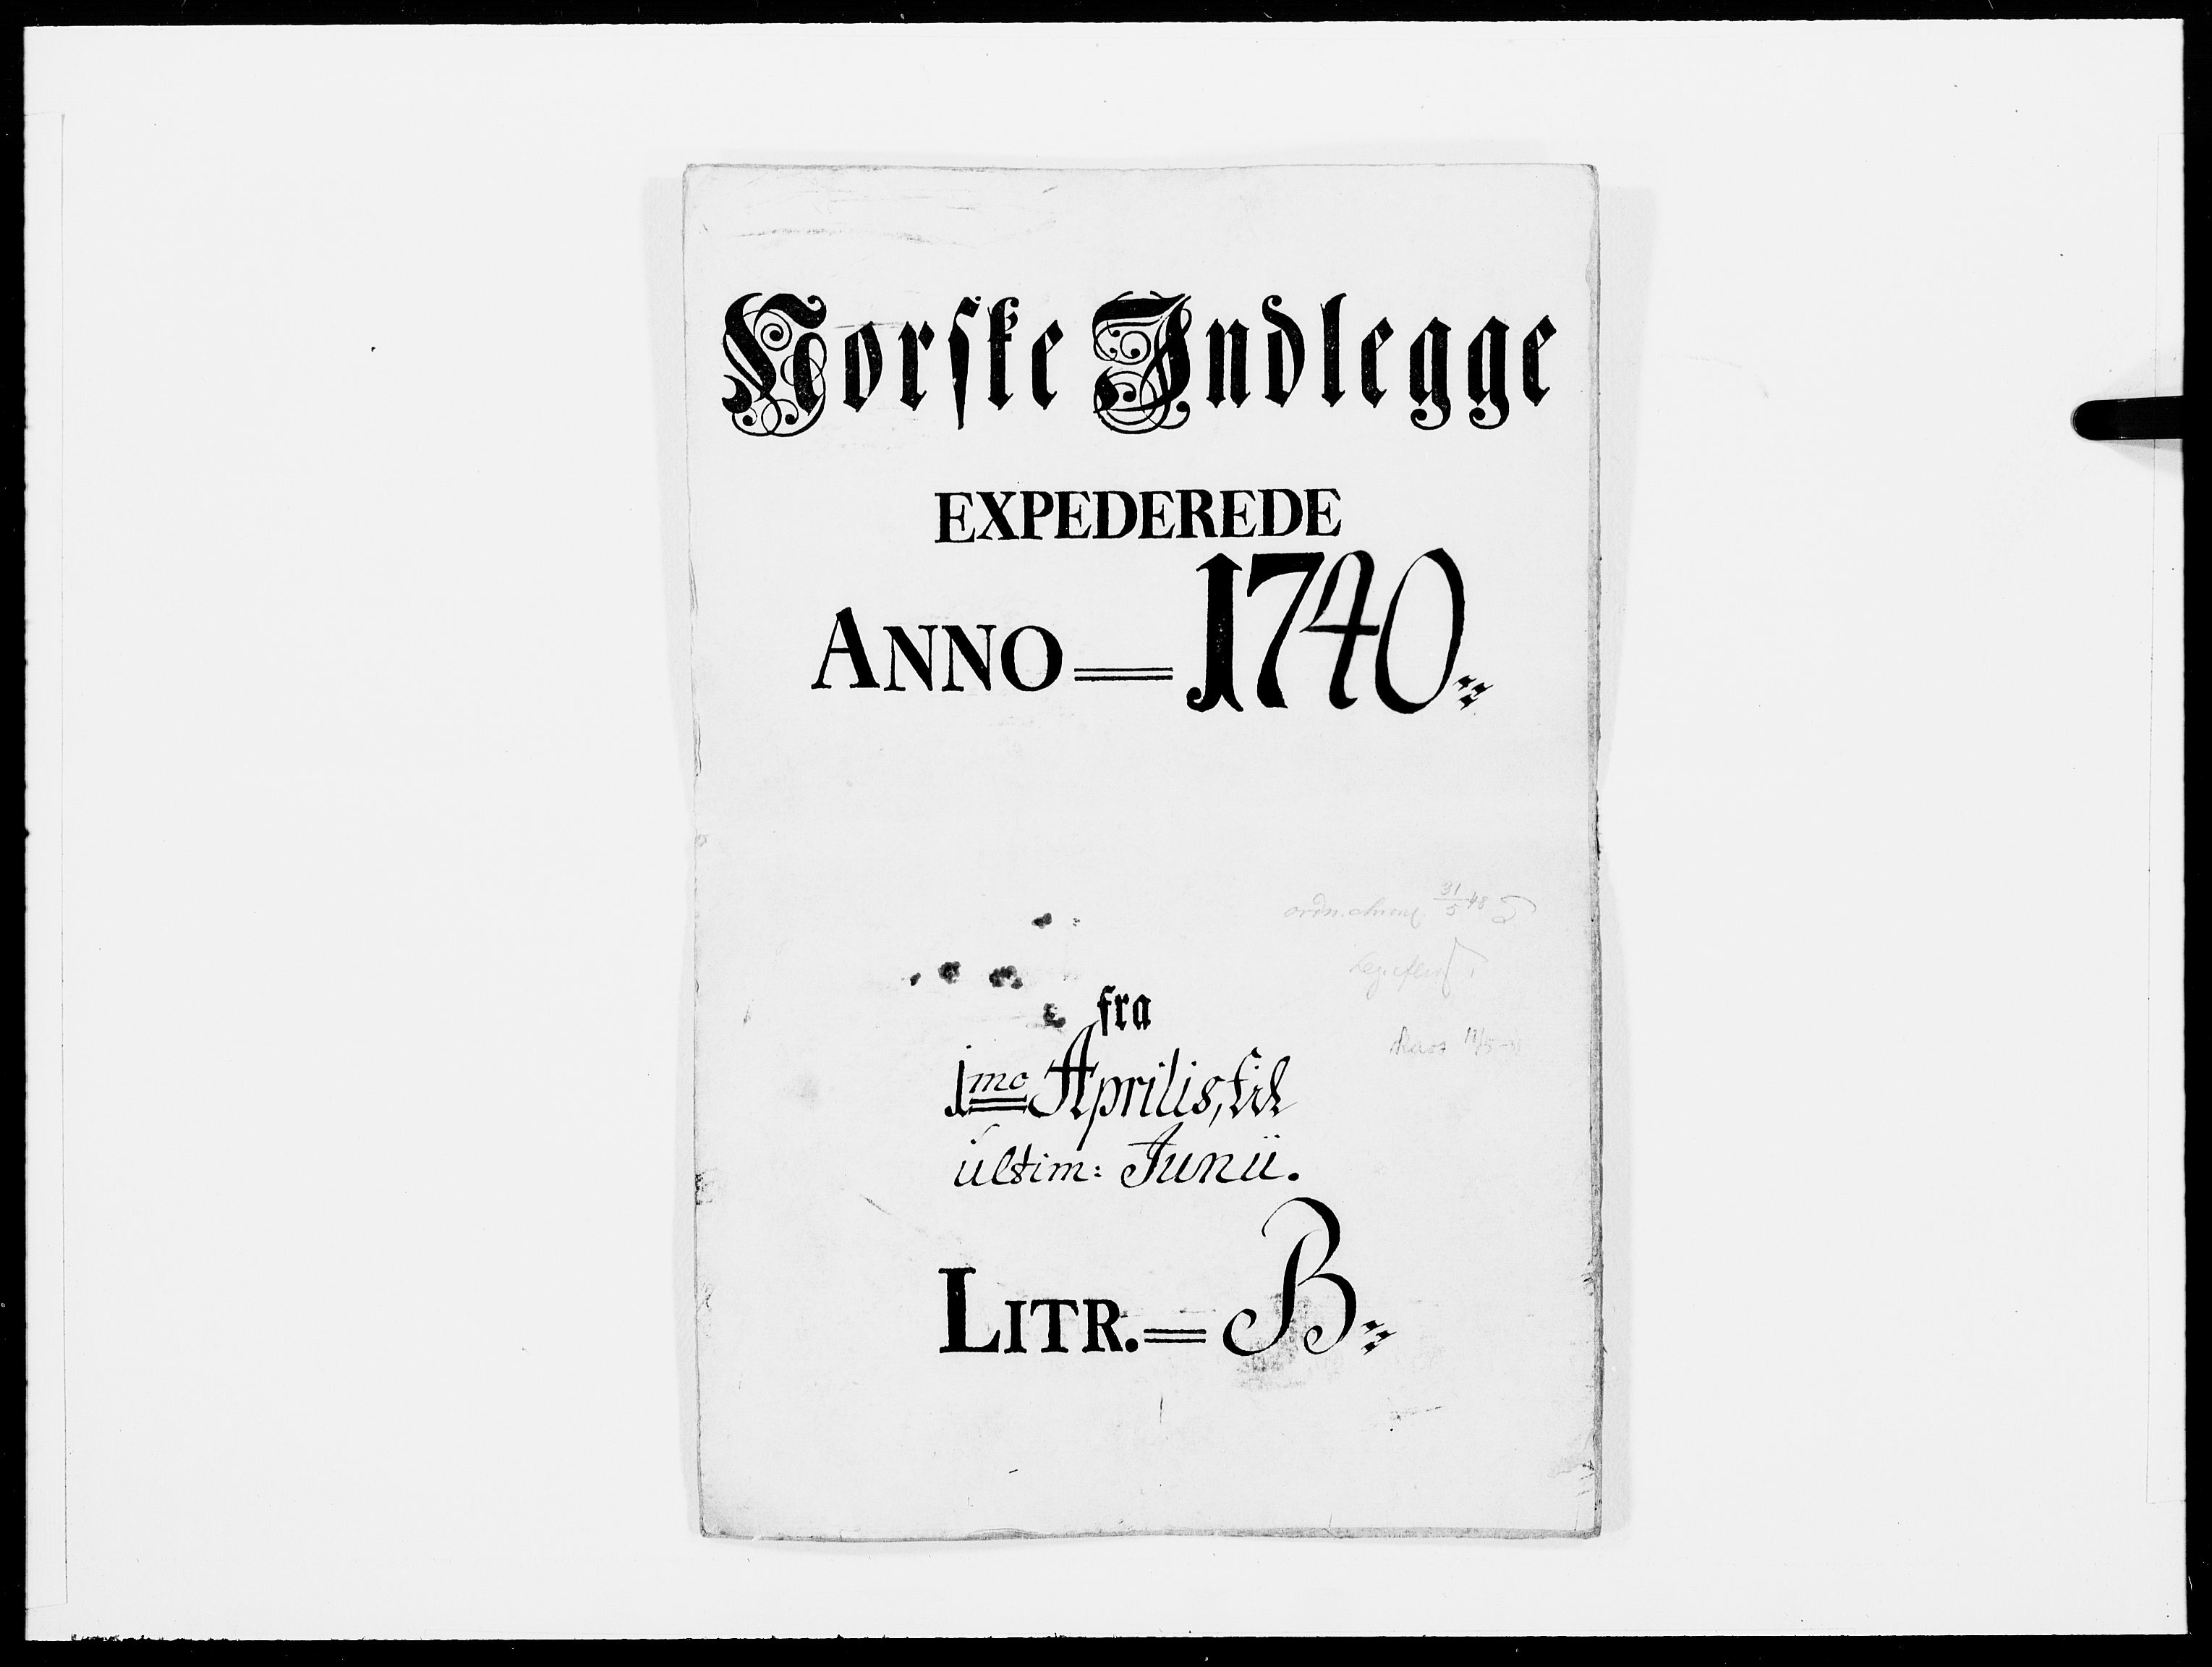 Norske Indlegge
EXPEDEREDE
ANNO = 1740
fra
1mo Aprilis, til
ultim: Junii.
LITR. = B
31/5 48
11/5